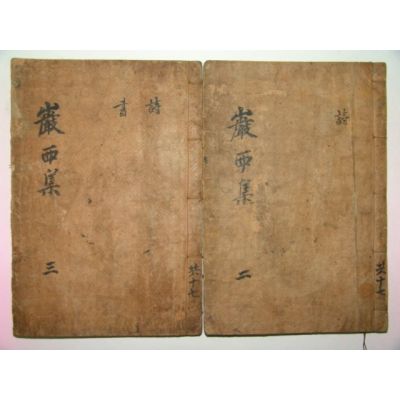 詩
巖西集 二
共十七
詩
書
巖西集 三
共十七